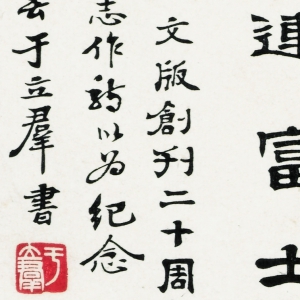 連富士
文版創刊二十周
志作詩以為紀念
去于立羣書
于立羣